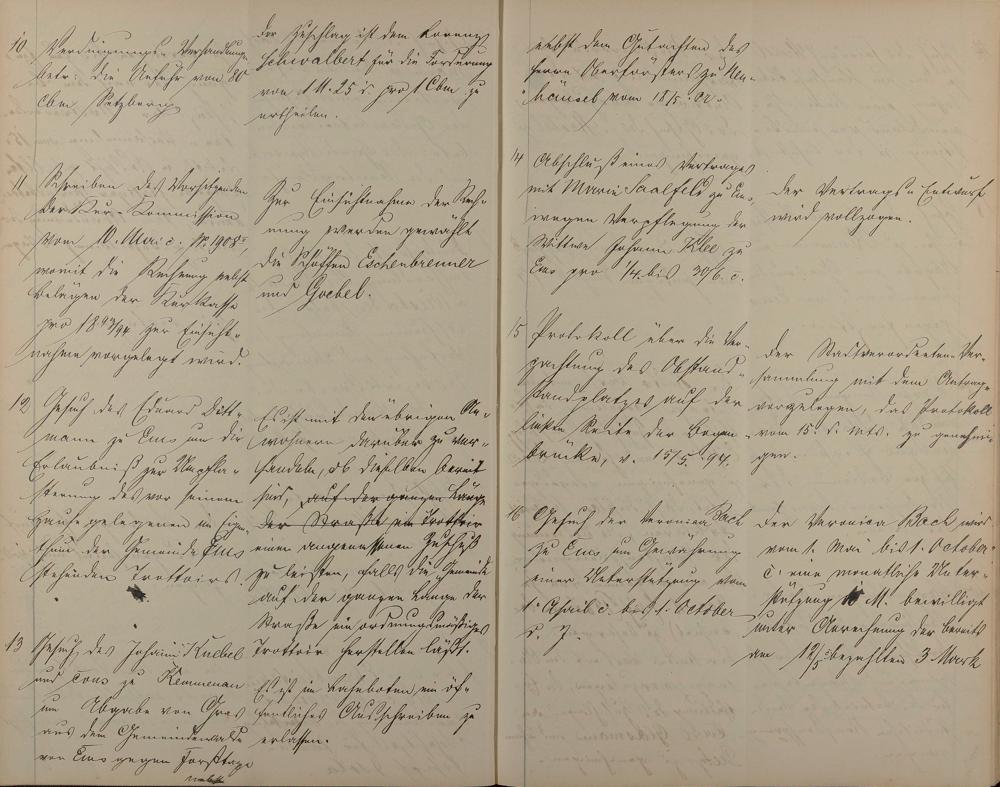 10
Verdingungs-Verhandlung
betr: die Anfuhr von 80
Cbm Setzberg
Der Zuschlag ist dem Lorenz
Schwalbert für die Forderung
von 1 M. 25 d pro 1 Cbm zu
ertheilen.
11
Schreiben des Vorsitzenden
der Kur-Kommission
vom 10. Mai c. No 1908,
womit die Rechnung nebst
Belägen der Kurkasse
pro 1893/94 zur Einsicht-
nahme vorgelegt wird.
Zur Einsichtnahme der Rech-
nung werden gewählt
die Schöffen Eschenbrenner
und Goebel.
12
Gesuch des Eduard Ditt-
mann zu Ems um die
Erlaubniß zur Umpfla-
sterung des vor seinem
Hause gelegenen im Eigen-
thum der Gemeinde Ems
stehenden Trottoirs.
Es ist mit den übrigen An-
wohnern darüber zu ver-
handeln, ob dieselben bereit
sind, auf der ganzen Länge
der Straße ein Trottoir
einen angemessenen Zuschuß
zu leisten, falls die Gemeinde
auf der ganzen Länge der
Straße ein ordnungsmäßiges
Trottoir herstellen läßt.
13
Gesuch des Johann Knebel
und Cons zu Kemmenau
um Abgabe von Gras
aus dem Gemeindewalde
von Ems gegen Forsttaxe
nebst
Es ist im Lahnboten ein öf-
fentliches Ausschreiben zu
erlassen.
nebst dem Gutachten des
Herrn Oberförsters zu Neu-
häusel vom 18/5. cr.
14
Abschluß eines Vertrages
mit Marie Saalfeld zu Ems,
wegen Verpflegung der
Wittwe Johann Klee zu
Ems pro 1/4. bis 30/6. c.
Der Vertrags-Entwurf
wird vollzogen.
15
Protokoll über die Ver-
pachtung des Obstand-
standplatzes auf der
linken Seite der Bogen-
brücke, v. 15/5. 94.
Der Stadtverordneten-Ver-
sammlung mit dem Antrage
vorzulegen, das Protokoll
vom 15. d. Mts. zu genehmi-
gen.
16
Gesuch der Veronica Bach
zu Ems um Gewährung
einer Unterstützung vom
1. April c. bis 1. October
d. J.
Der Veronica Bach wird
vom 1. Mai bis 1. October
c. eine monatliche Unter-
stützung M. bewilligt
unter Anrechnung der bereits
am 12/5 bezahlten 3 Mark